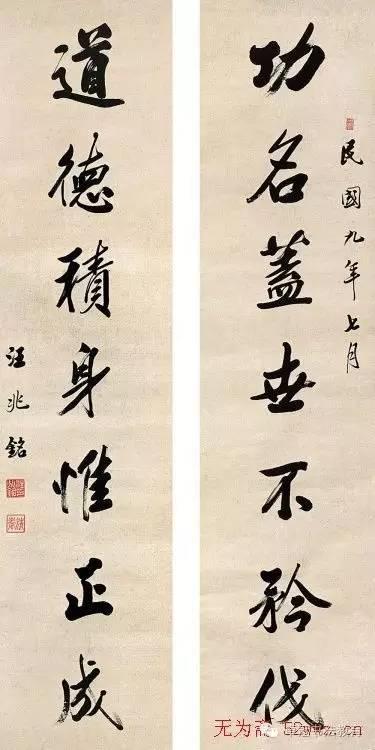 民國九年七月
功名蓋世不矜伐
道德積身惟正成
汪兆銘
无为